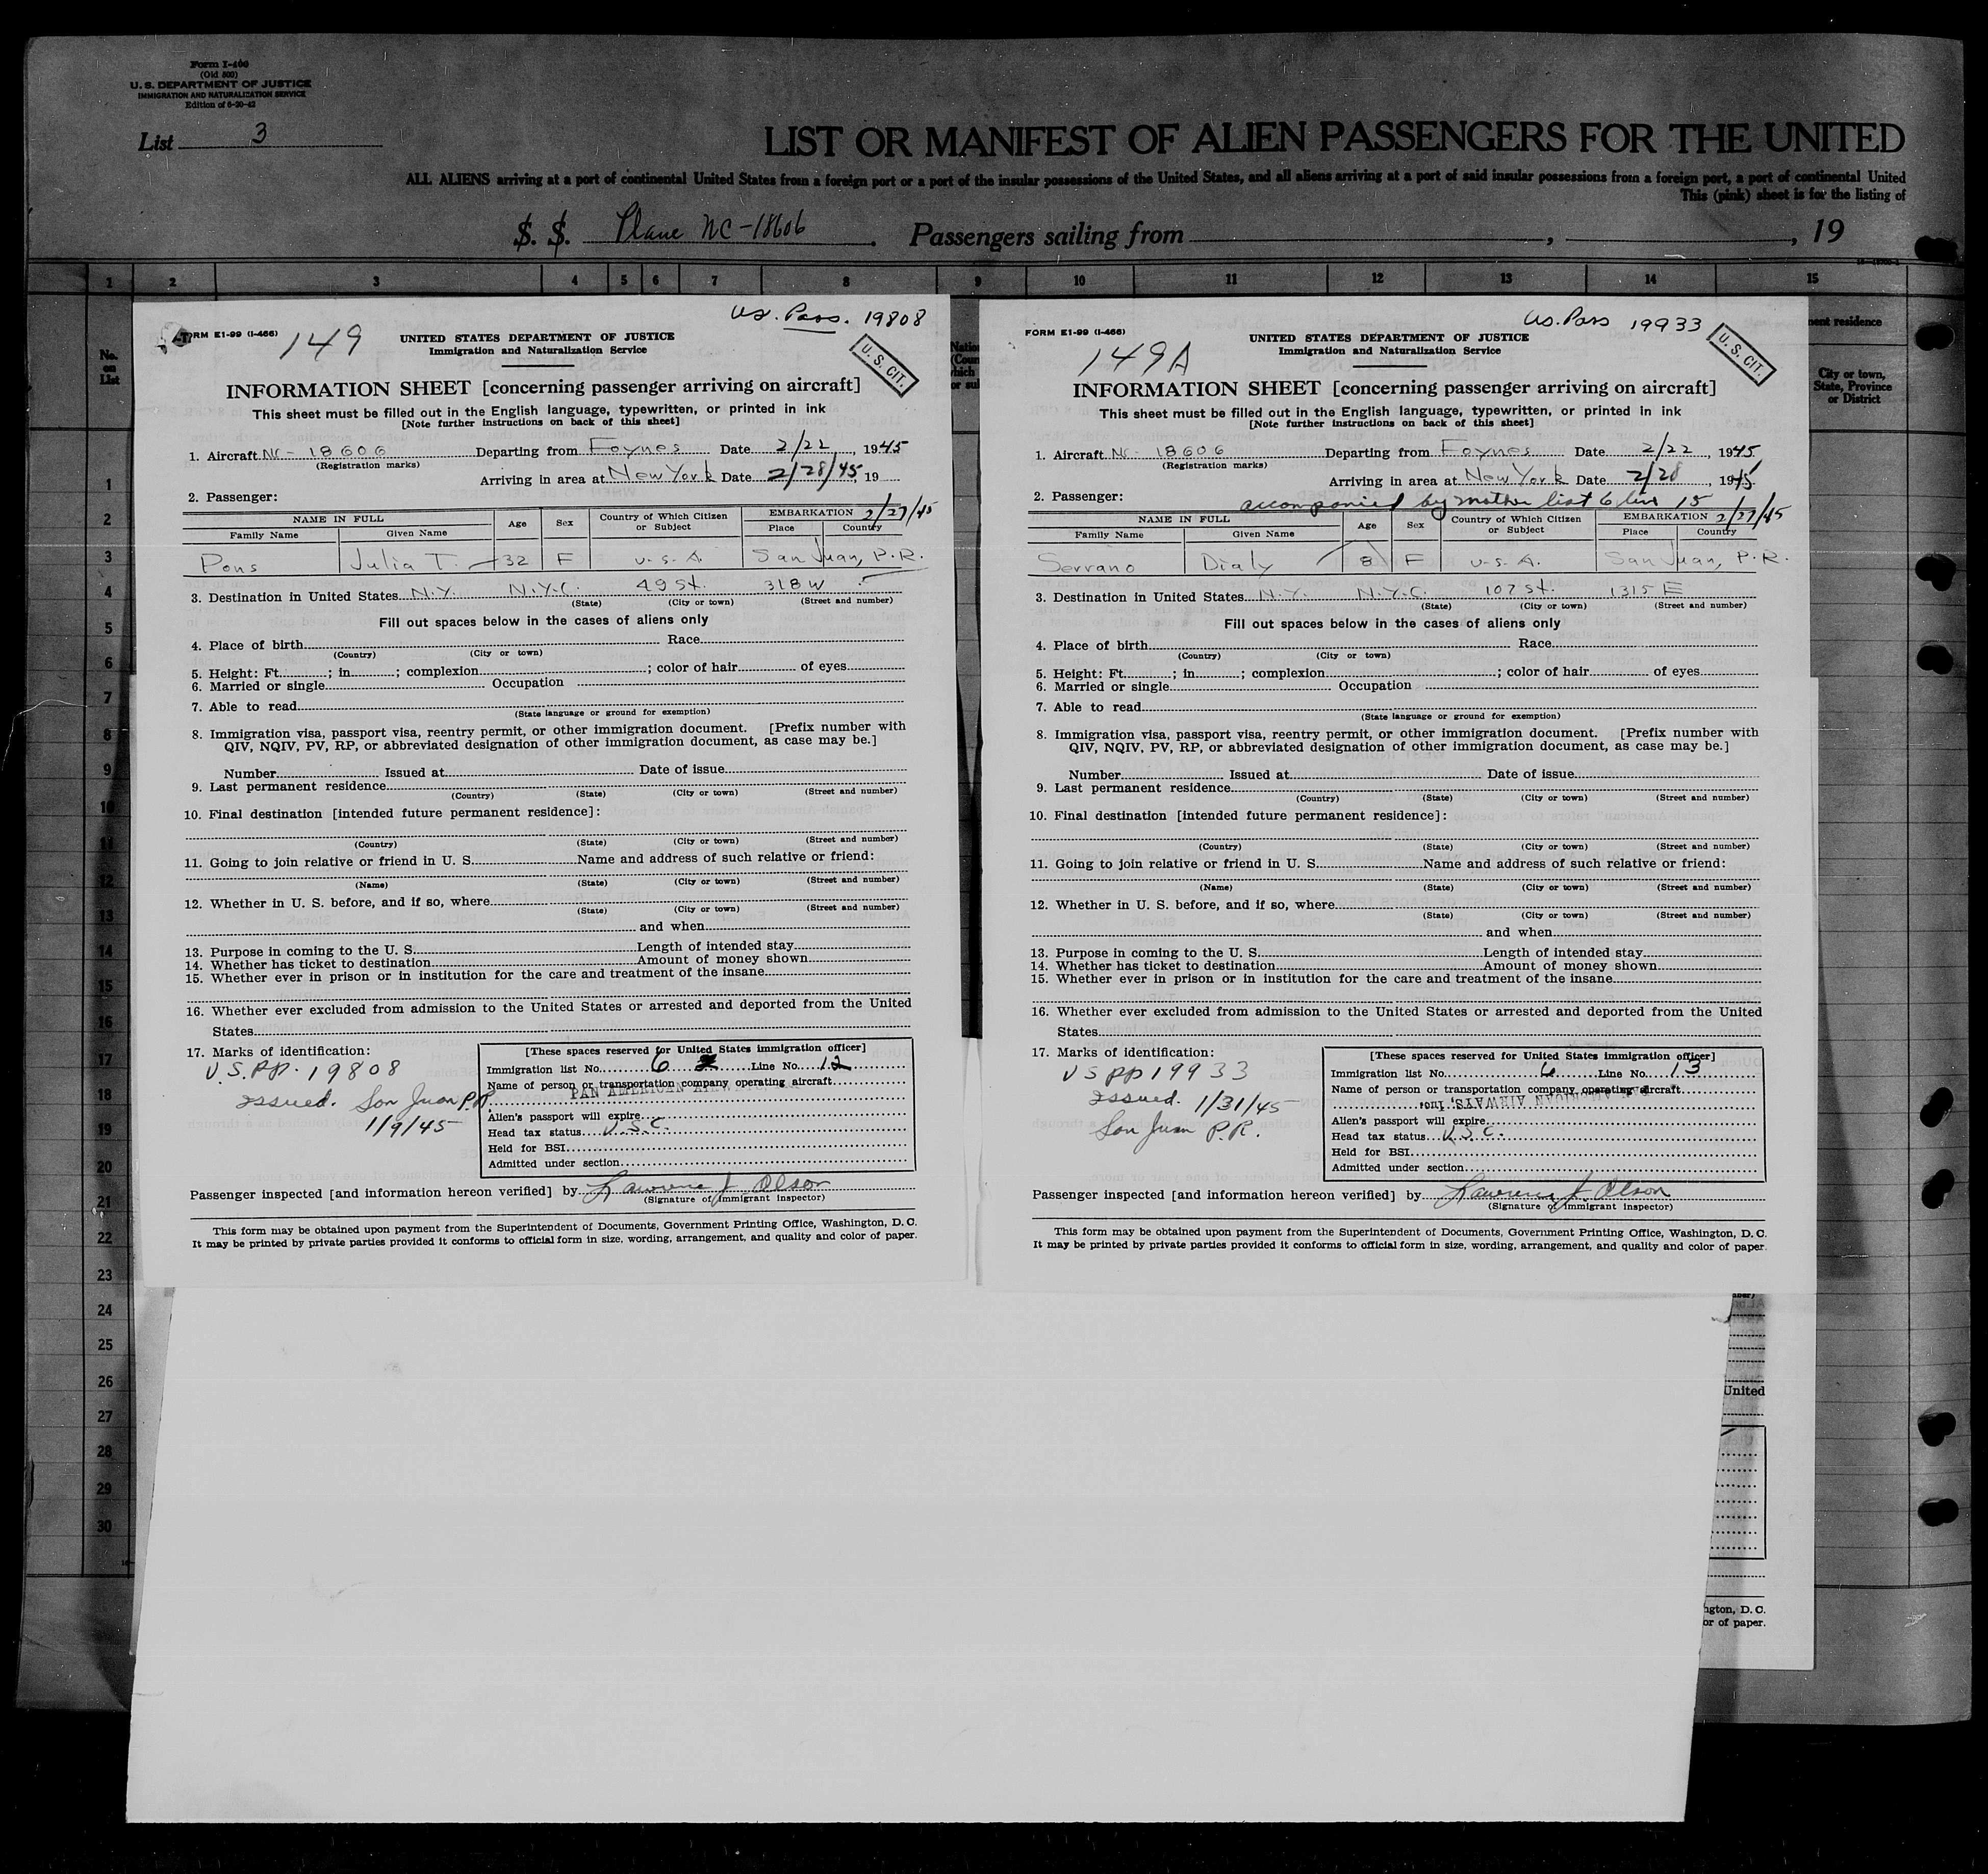 Form I-400
(Old 500)
U. S. DEPARTMENT OF JUSTICE
IMMIGRATION AND NATURALIZATION SERVICE
Edition of 6-20-42
List 3
LIST OR MANIFEST OF ALIEN PASSENGERS FOR THE UNITED
ALL ALIENS arriving at a port of continental United States from a foreign port or a port of the insular possessions of the United States, and all aliens arriving at a port of said insular possessions from a foreign port, a port of continental United
This (pink) sheet is for the listing of
S. S. Plane NC-18606. Passengers sailing from , , 19
1 2 3 4 5 6 7 8 9 10 11 12 13 14 15
No. on List
City or town, State, Province or District
1
2
3
4
5
6
7
8
9
10
11
12
13
14
15
16
17
18
19
20
21
22
23
24
25
26
27
28
29
30
US. Pass. 19808
FORM E1-99 (I-466)
149
UNITED STATES DEPARTMENT OF JUSTICE
Immigration and Naturalization Service
U. S. CIT.
INFORMATION SHEET [concerning passenger arriving on aircraft]
This sheet must be filled out in the English language, typewritten, or printed in ink
[Note further instructions on back of this sheet]
1. Aircraft NC-18606 Departing from Foynes Date 2/22, 1945
(Registration marks)
Arriving in area at New York Date 2/28/45 19
2. Passenger:
2/27/45
NAME IN FULL Age Sex Country of Which Citizen or Subject EMBARKATION
Family Name Given Name Place Country
Pons Julia T. 32 F U.S.A. San Juan, P.R.
3. Destination in United States N.Y. N.Y.C. 49 St. 318 W
(State) (City or town) (Street and number)
Fill out spaces below in the cases of aliens only
4. Place of birth Race
(Country) (City or town)
5. Height: Ft. ; in. ; complexion ; color of hair of eyes
6. Married or single Occupation
7. Able to read
(State language or ground for exemption)
8. Immigration visa, passport visa, reentry permit, or other immigration document. [Prefix number with
QIV, NQIV, PV, RP, or abbreviated designation of other immigration document, as case may be.]
Number Issued at Date of issue
9. Last permanent residence
(Country) (State) (City or town) (Street and number)
10. Final destination [intended future permanent residence]:
(Country) (State) (City or town) (Street and number)
11. Going to join relative or friend in U. S. Name and address of such relative or friend:
(Name) (State) (City or town) (Street and number)
12. Whether in U. S. before, and if so, where
(State) (City or town) (Street and number)
and when
13. Purpose in coming to the U. S. Length of intended stay
14. Whether has ticket to destination Amount of money shown
15. Whether ever in prison or in institution for the care and treatment of the insane
16. Whether ever excluded from admission to the United States or arrested and deported from the United
States
17. Marks of identification:
U.S.PP. 19808
Issued. San Juan P.R.
1/9/45
[These spaces reserved for United States immigration officer]
Immigration list No. 6 Line No. 12
Name of person or transportation company operating aircraft
PAN AMERICAN AIRWAYS
Alien's passport will expire
Head tax status U.S.C.
Held for BSI
Admitted under section
Passenger inspected [and information hereon verified] by Lawrence J Olson
(Signature of immigrant inspector)
This form may be obtained upon payment from the Superintendent of Documents, Government Printing Office, Washington, D. C.
It may be printed by private parties provided it conforms to official form in size, wording, arrangement, and quality and color of paper.
US. Pass 19933
FORM E1-99 (I-466)
149A
UNITED STATES DEPARTMENT OF JUSTICE
Immigration and Naturalization Service
U. S. CIT.
INFORMATION SHEET [concerning passenger arriving on aircraft]
This sheet must be filled out in the English language, typewritten, or printed in ink
[Note further instructions on back of this sheet]
1. Aircraft NC-18606 Departing from Foynes Date 2/22, 1945
(Registration marks)
Arriving in area at New York Date 2/28, 1945
2. Passenger: accompanied by mother list 6 line 15
2/27/45
NAME IN FULL Age Sex Country of Which Citizen or Subject EMBARKATION
Family Name Given Name Place Country
Serrano Dialy 8 F U.S.A. San Juan, P.R.
3. Destination in United States N.Y. N.Y.C. 107 St. 1315 E
(State) (City or town) (Street and number)
Fill out spaces below in the cases of aliens only
4. Place of birth Race
(Country) (City or town)
5. Height: Ft. ; in. ; complexion ; color of hair of eyes
6. Married or single Occupation
7. Able to read
(State language or ground for exemption)
8. Immigration visa, passport visa, reentry permit, or other immigration document. [Prefix number with
QIV, NQIV, PV, RP, or abbreviated designation of other immigration document, as case may be.]
Number Issued at Date of issue
9. Last permanent residence
(Country) (State) (City or town) (Street and number)
10. Final destination [intended future permanent residence]:
(Country) (State) (City or town) (Street and number)
11. Going to join relative or friend in U. S. Name and address of such relative or friend:
(Name) (State) (City or town) (Street and number)
12. Whether in U. S. before, and if so, where
(State) (City or town) (Street and number)
and when
13. Purpose in coming to the U. S. Length of intended stay
14. Whether has ticket to destination Amount of money shown
15. Whether ever in prison or in institution for the care and treatment of the insane
16. Whether ever excluded from admission to the United States or arrested and deported from the United
States
17. Marks of identification:
US PP 19933
Issued. 1/31/45
San Juan P.R.
[These spaces reserved for United States immigration officer]
Immigration list No. 6 Line No. 13
Name of person or transportation company operating aircraft
PAN AMERICAN AIRWAYS, Inc.
Alien's passport will expire
Head tax status U.S.C.
Held for BSI
Admitted under section
Passenger inspected [and information hereon verified] by Lawrence J Olson
(Signature of immigrant inspector)
This form may be obtained upon payment from the Superintendent of Documents, Government Printing Office, Washington, D. C.
It may be printed by private parties provided it conforms to official form in size, wording, arrangement, and quality and color of paper.
United
ngton, D. C.
or of paper.